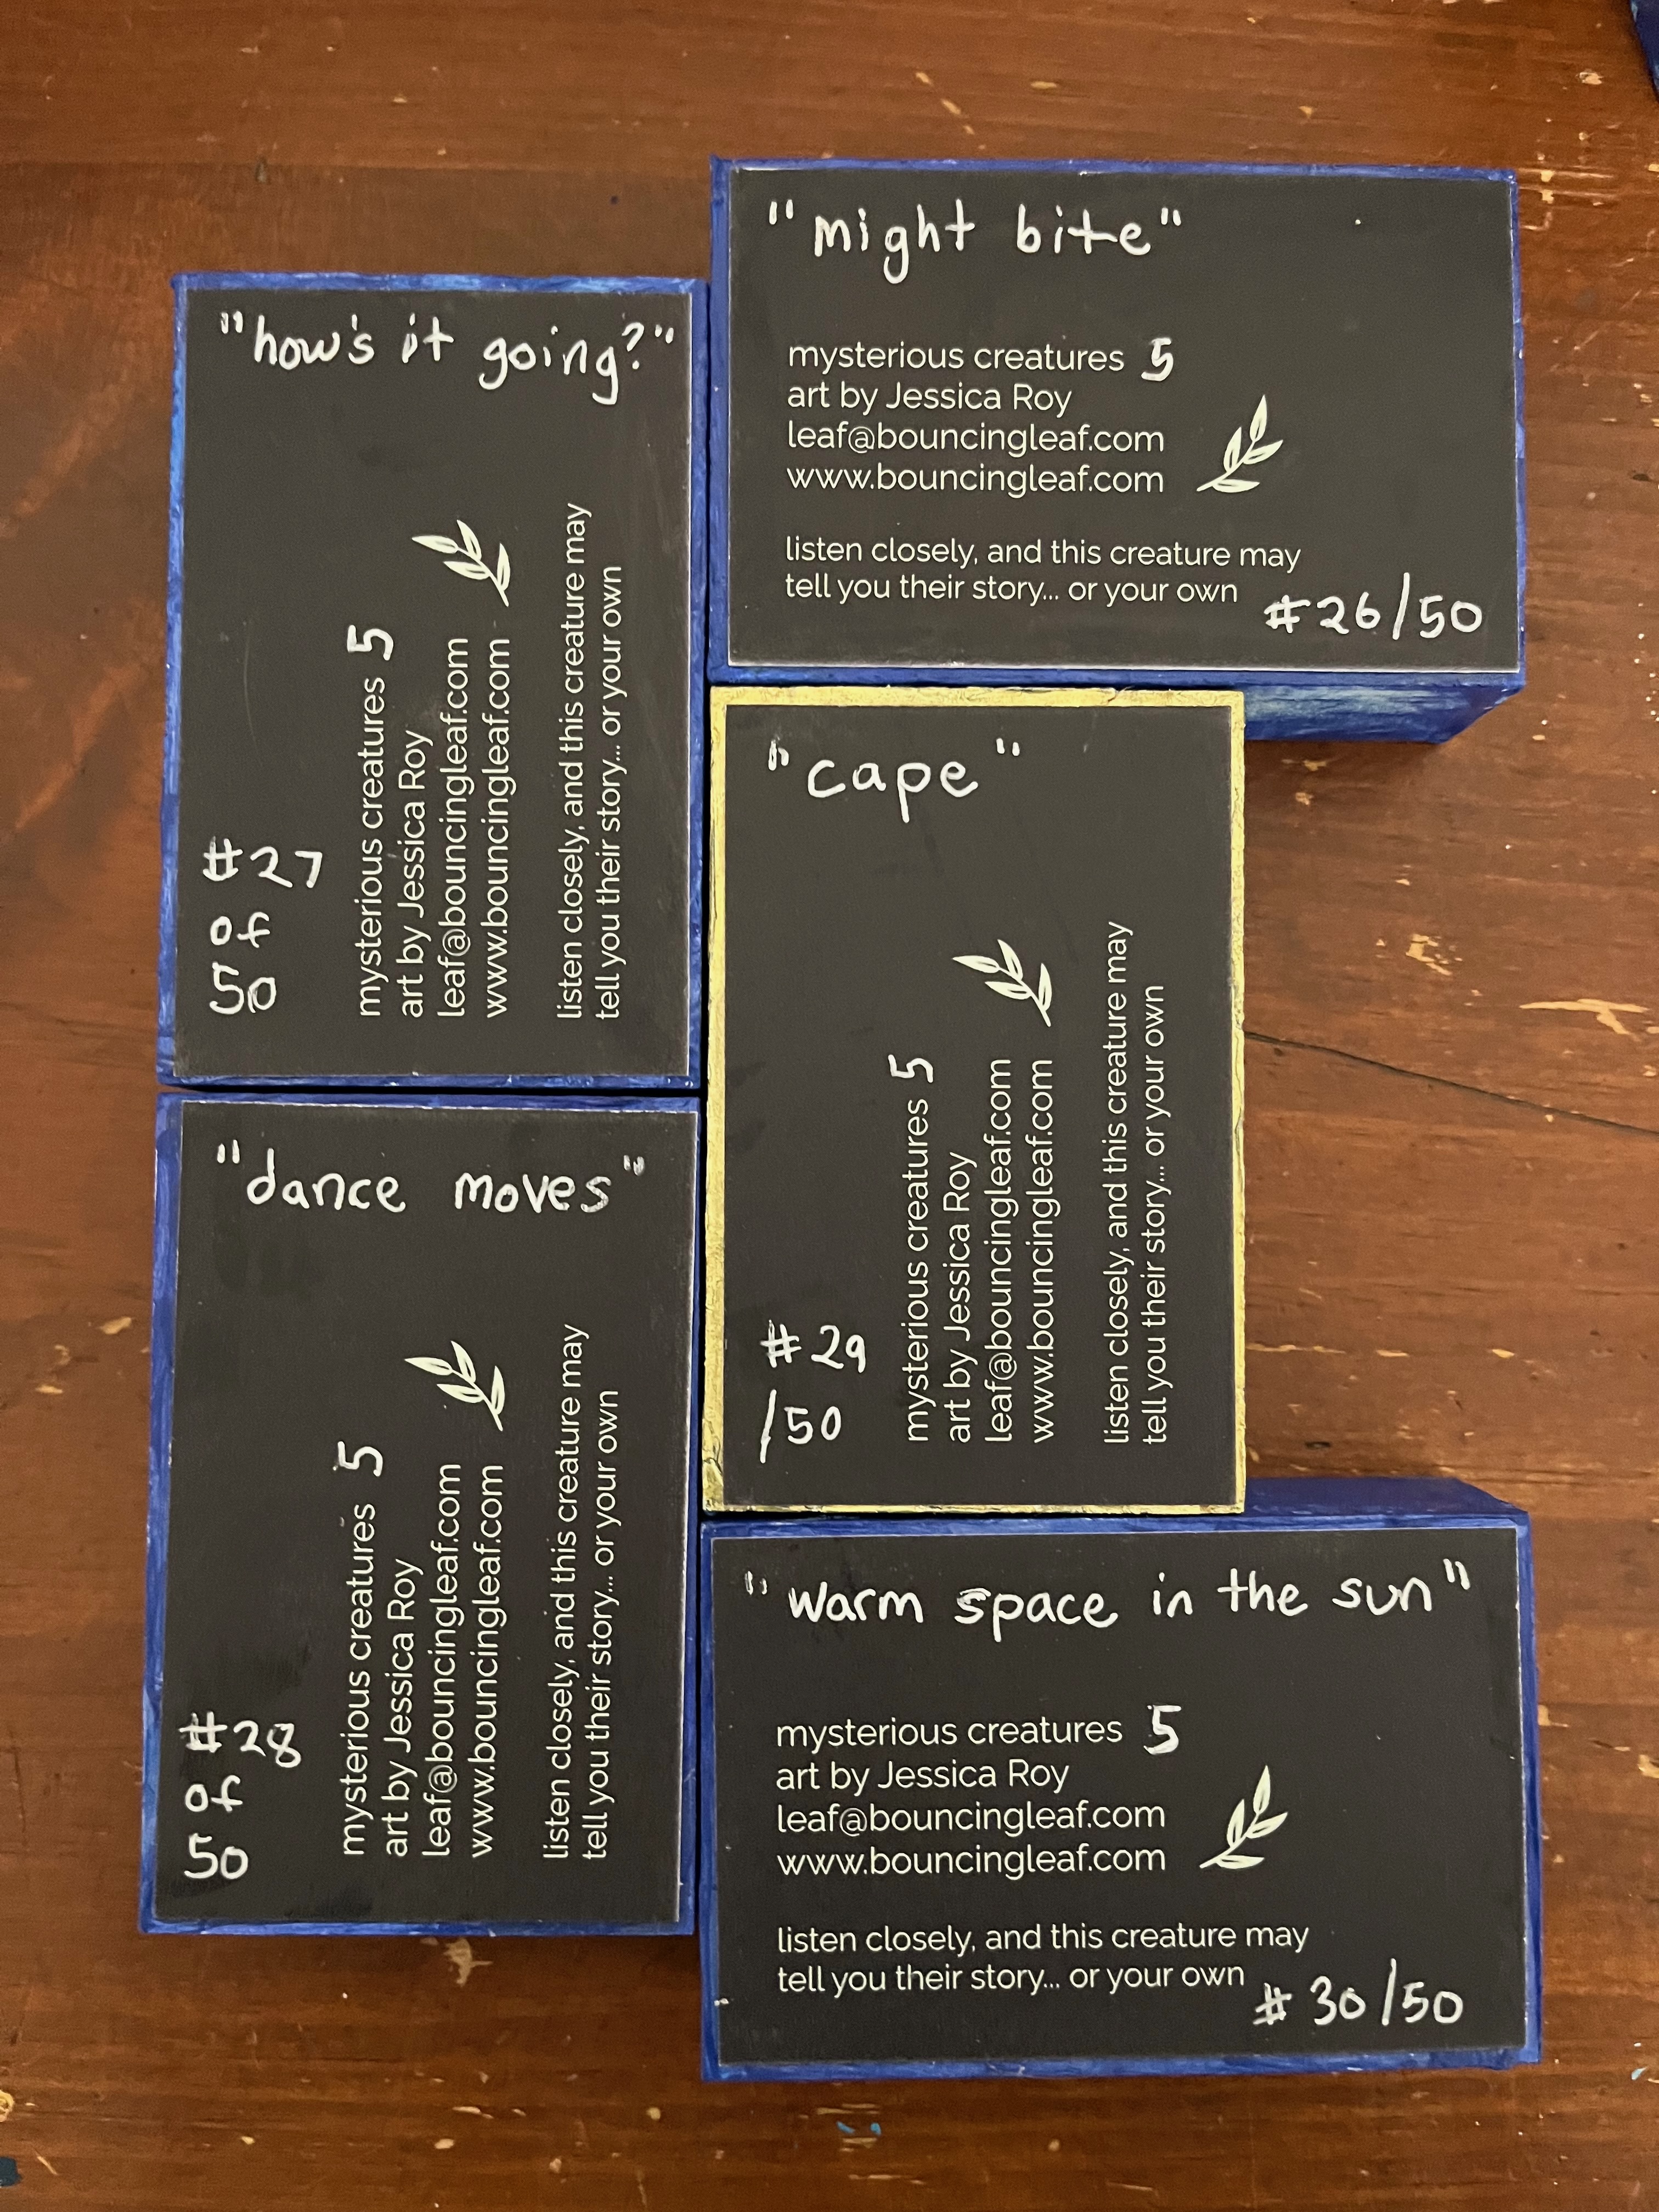 "might bite"
mysterious creatures 5
art by Jessica Roy
leaf@bouncingleaf.com
www.bouncingleaf.com
listen closely, and this creature may
tell you their story... or your own
#26/50
"how's it going?"
#27
of
50
mysterious creatures 5
art by Jessica Roy
leaf@bouncingleaf.com
www.bouncingleaf.com
listen closely, and this creature may
tell you their story... or your own
"dance moves"
#28
of
50
mysterious creatures 5
art by Jessica Roy
leaf@bouncingleaf.com
www.bouncingleaf.com
listen closely, and this creature may
tell you their story... or your own
"cape"
#29
/50
mysterious creatures 5
art by Jessica Roy
leaf@bouncingleaf.com
www.bouncingleaf.com
listen closely, and this creature may
tell you their story... or your own
"warm space in the sun"
mysterious creatures 5
art by Jessica Roy
leaf@bouncingleaf.com
www.bouncingleaf.com
listen closely, and this creature may
tell you their story... or your own
#30/50